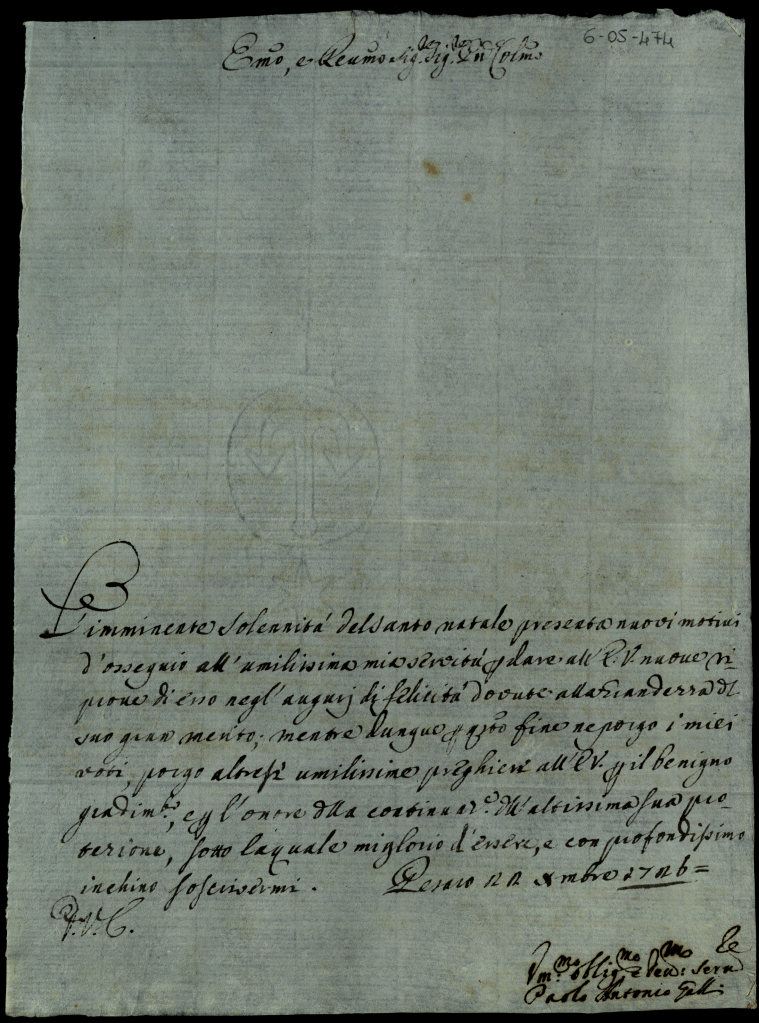 6-05-474
Emo, e Reumo Sig. Sig. Pñ Colmo
L'imminente solennità del santo natale presenta nuovi motivi
d'ossequio all'umilissima mia servitù p dare all'E.V. nuove ri-
prove di esso negl'augurj di felicità dovute alla grandezza del
suo gran merito; mentre dunque p qsto fine ne porgo i miei
voti, porgo altresì umilissime preghiere all'E.V. p il benigno
gradimto, e p l'onore dlla continuaze dll'altissima sua pro-
tezione, sotto la quale mi glorio d'essere, e con profondissimo
inchino soscrivermi. Pesaro 22 Xmbre 1726=
P.V.E.
Vmo obligmo e deu: seru
Paolo Antonio Galli